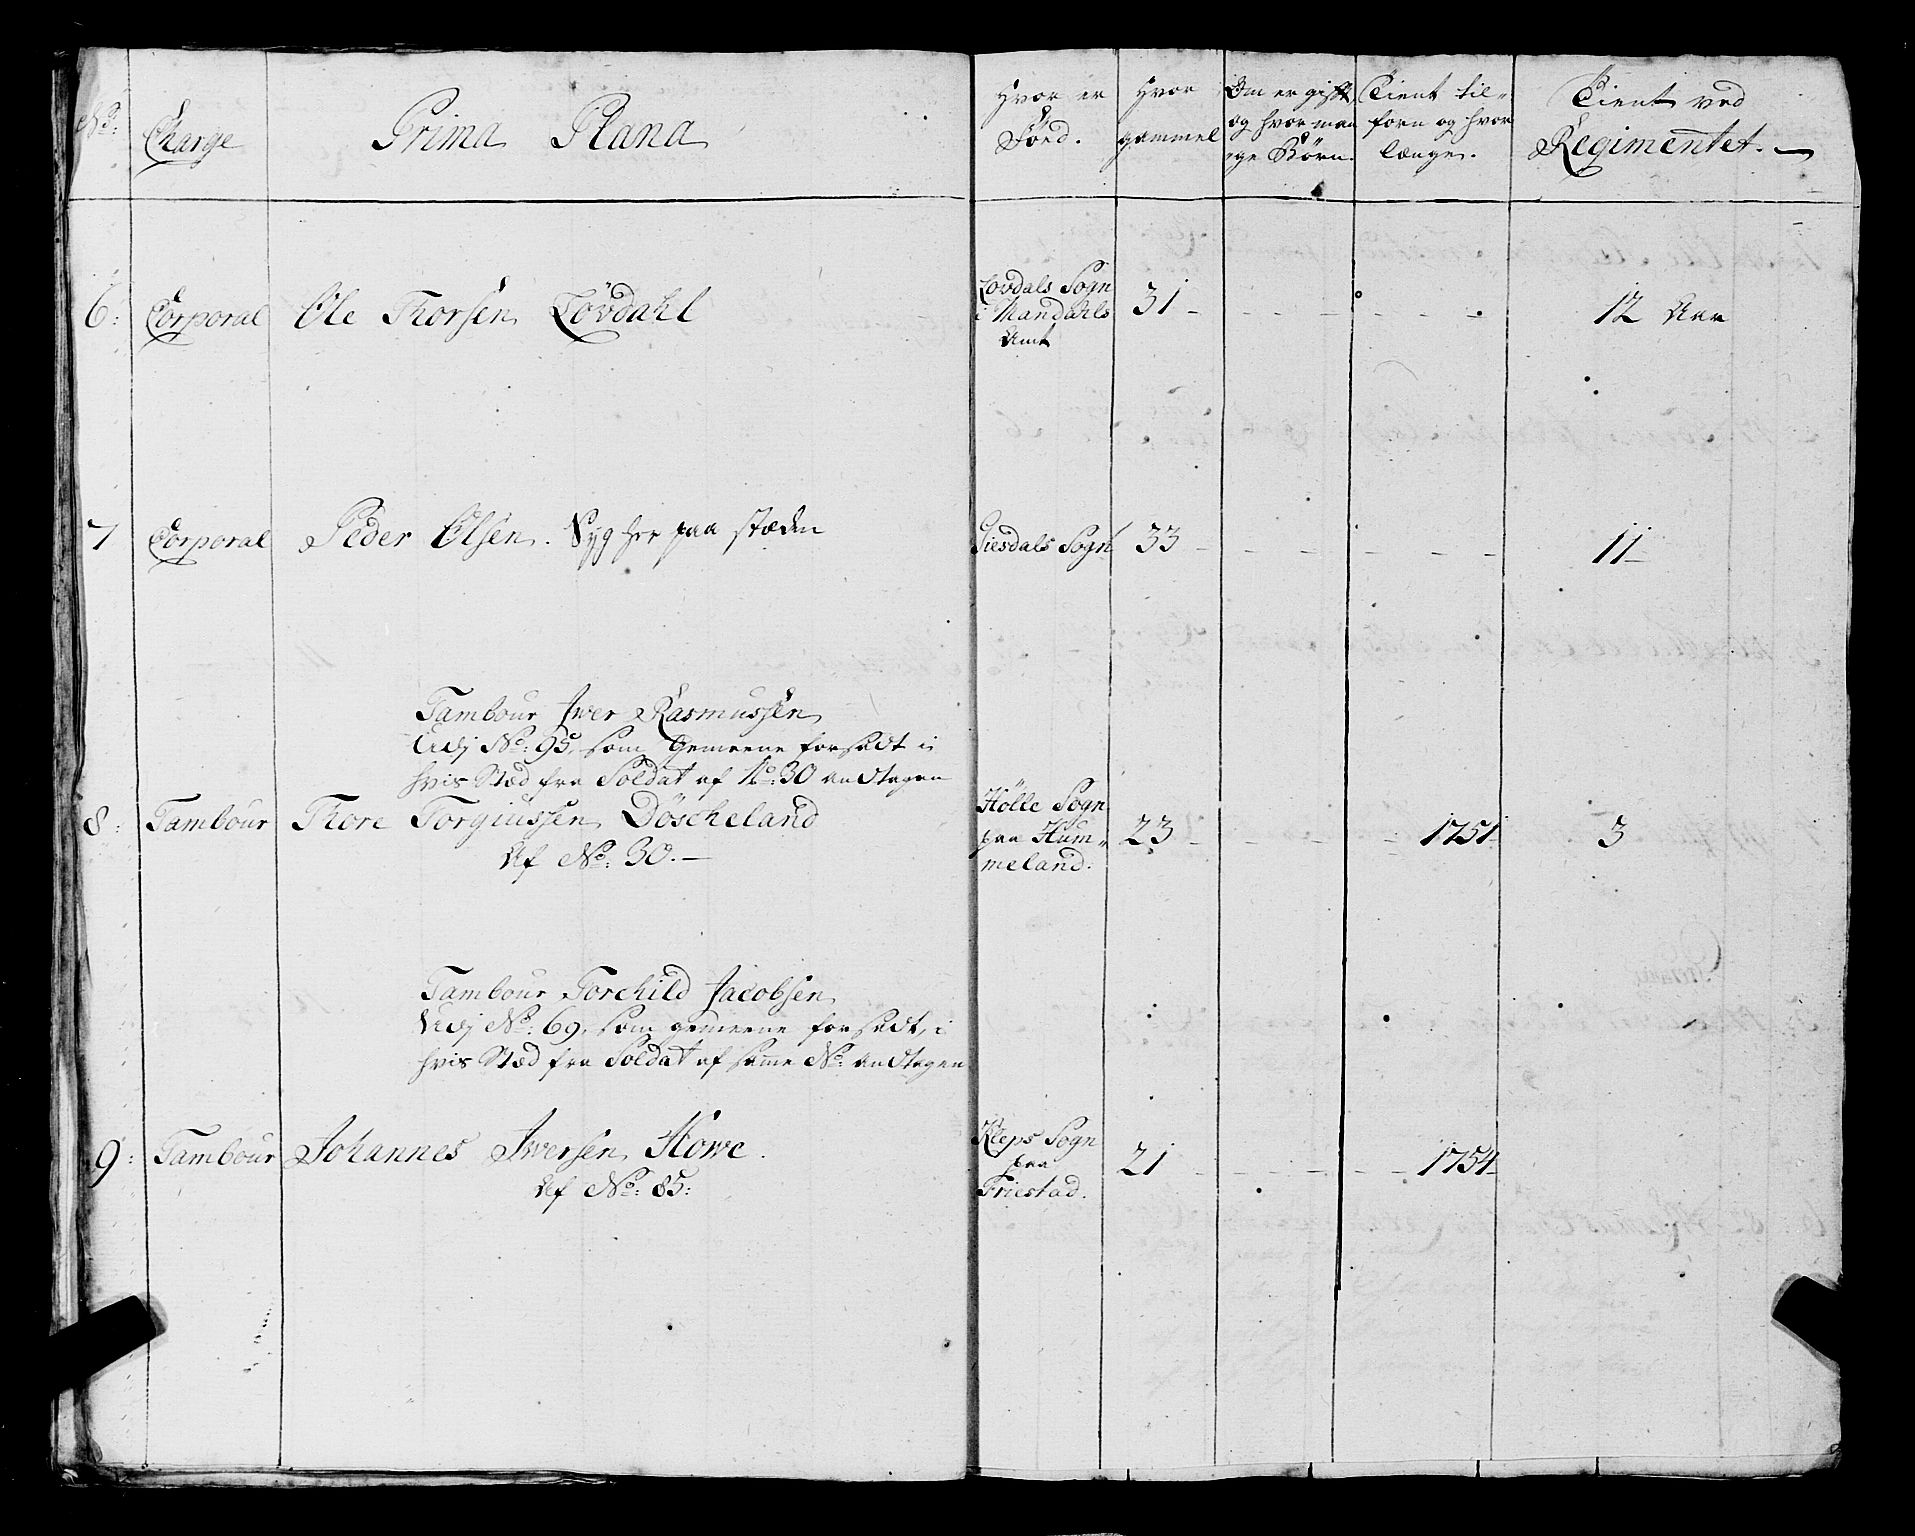 No: Charge Prima Plana
Hvor er Föed.
Hvor gammel
Om er gift, og hvor man ge Börn.
Tient til- forn og hvor længe.
Tient ved Regimentet.
6: Corporal Ole Thorsen Lövdahl
Lovdals Sogn
i Mandahls
Amt
31 - - - - - - 12 Aar
7 Corporal Peder Olsen. Syg her paa stæden
Giesdals Sogn 33 - - - - - - 11 -
Tambour Iver Rasmussen
No: 95, som Gemeene forsadt i
hvis Stæd fra Soldat af No: 30 andtagen
8: Tambour Thore Torgiussen Döscheland
Af No: 30. -
Hölle Sogn
paa Hum-
meland:
23 - - - - 1751 - 3
Tambour Torchild Jacobsen
No: 69, som gemeene forsadt, i
hvis Stæd fra Soldat af samme No: andtagen
9: Tambour Johannes Iwersen Howe.
Af No: 85:
Kleps Sogn
paa
Friestad.
21 - - - - - 1754 -